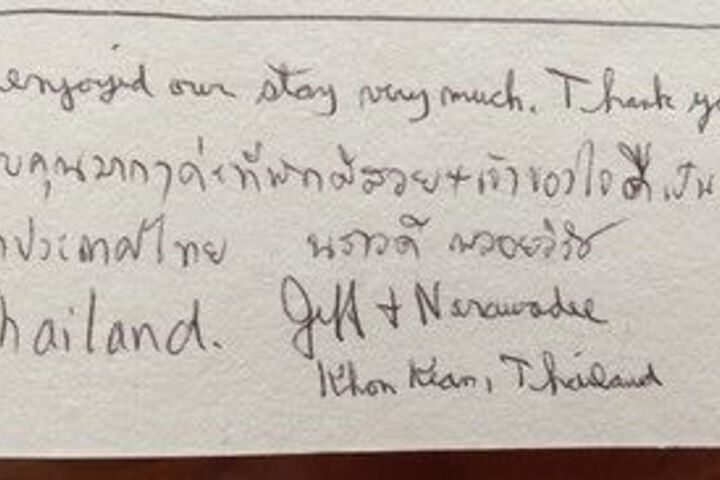 enjoyed our stay very much. Thank
บคุณมากๆค่ะที่พักดีสวย+เจ้าของใจดี เป็น
ประเทศไทย นราวดี
hailand. Jeff + Narawadee
Khon Kean, Thailand